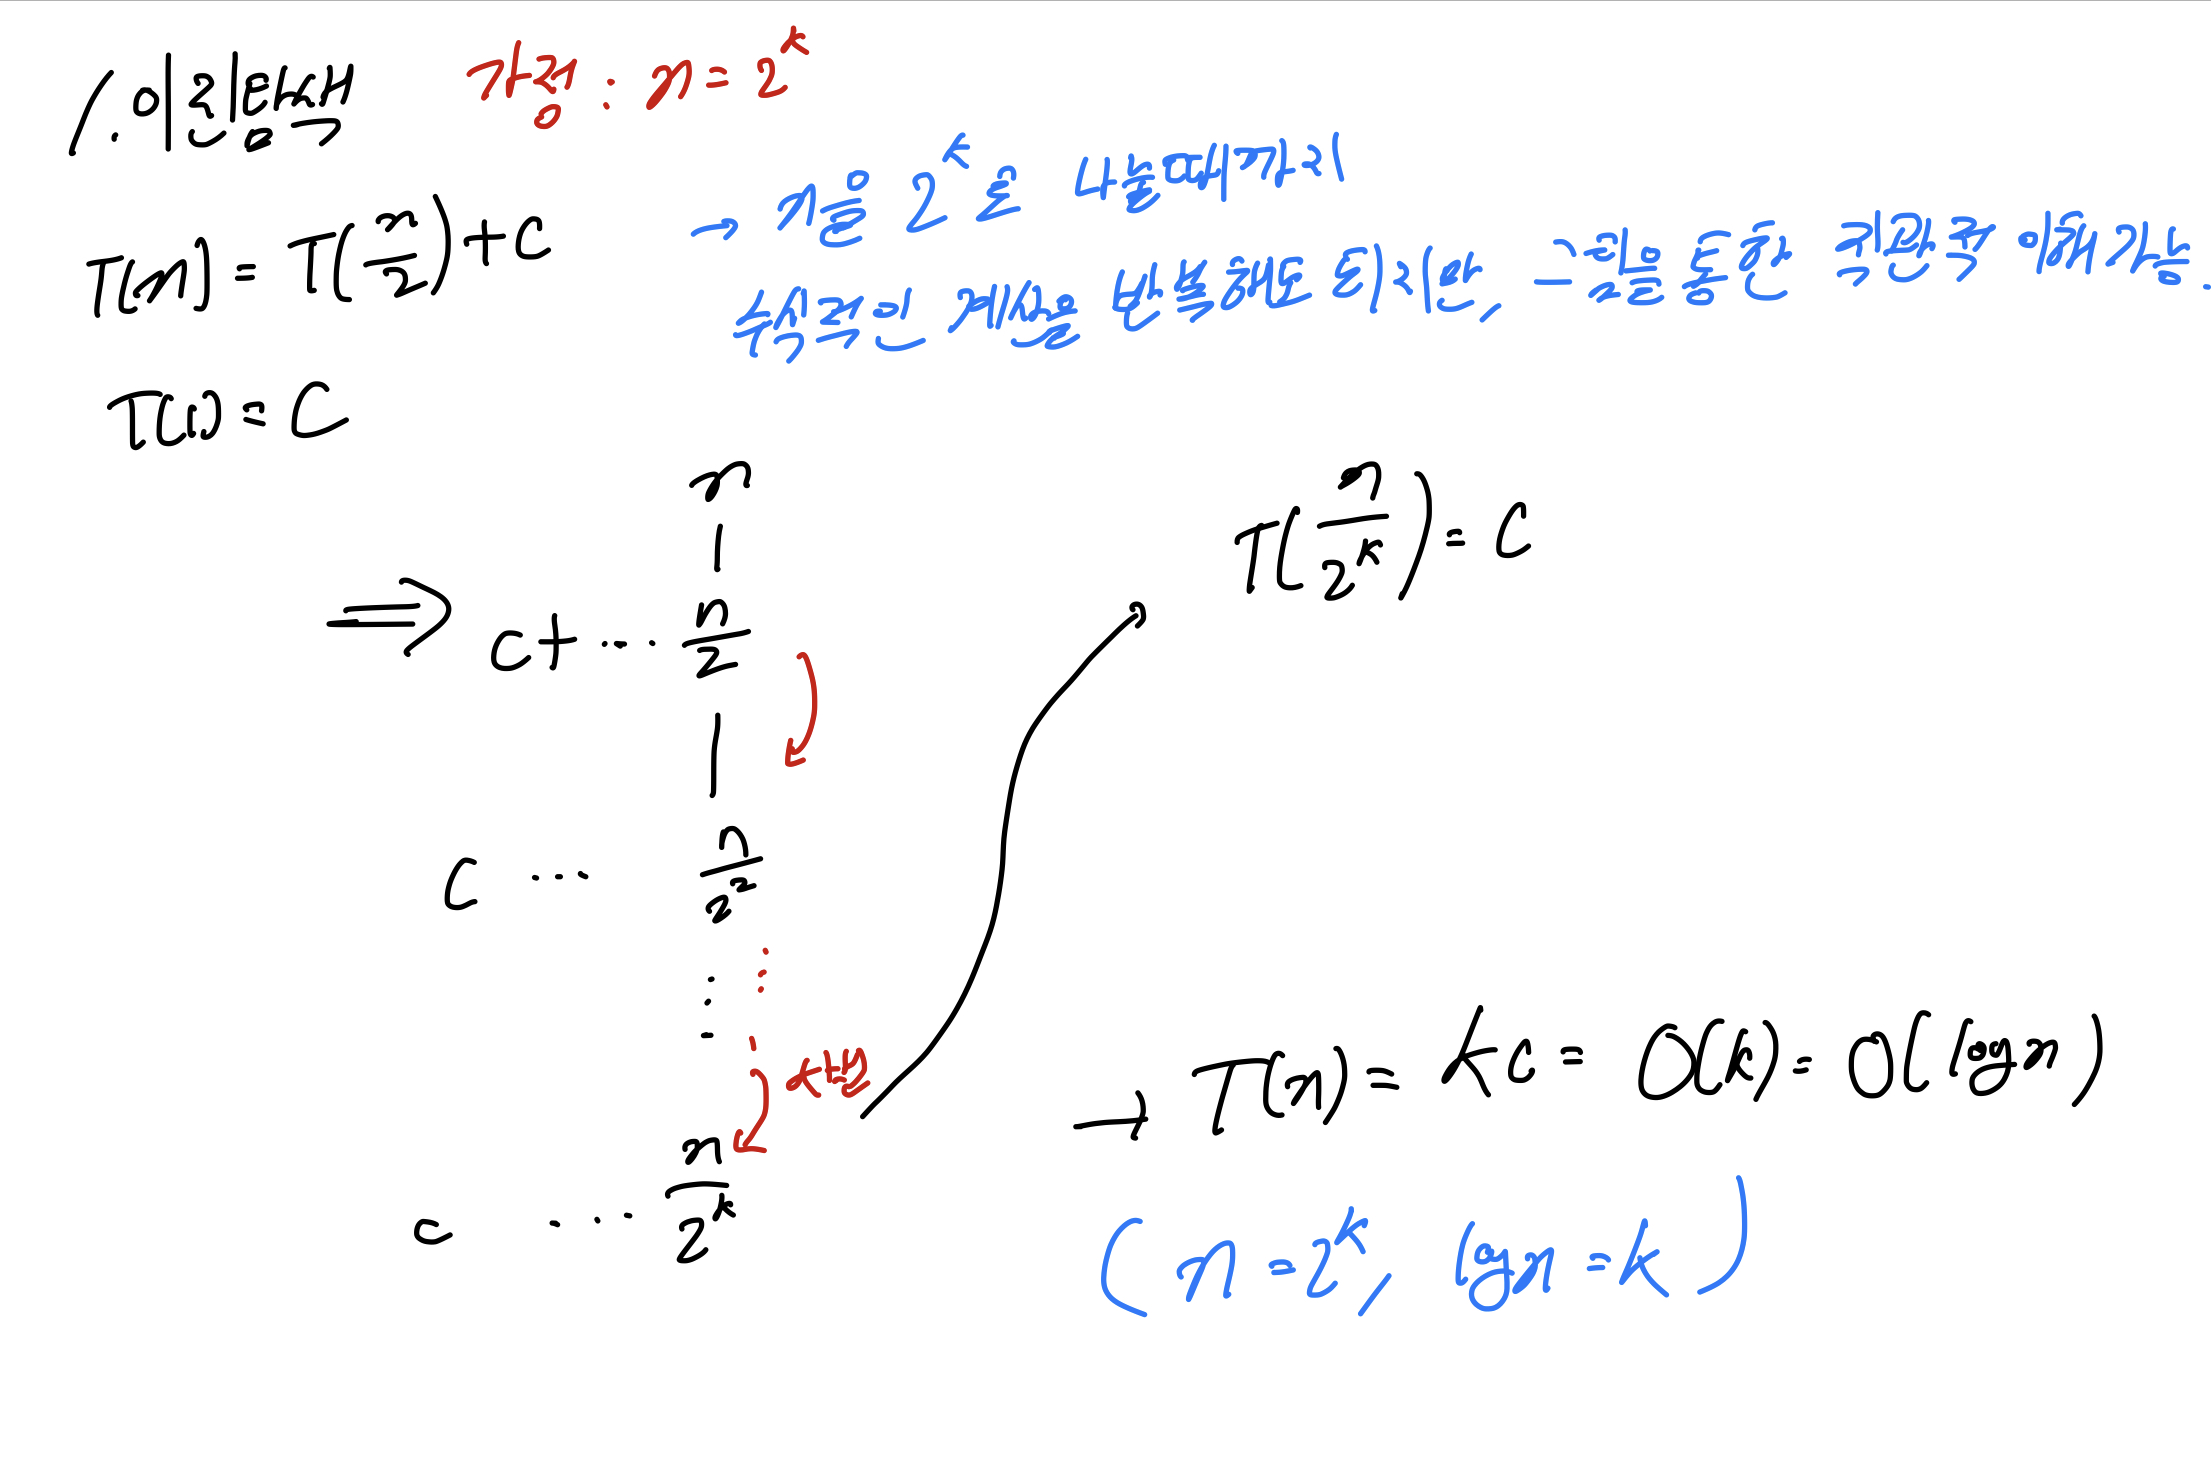 1. 이진탐색 가정 : n = 2^k
T(n) = T(n/2) + C
→ n을 2^k로 나눌때까지
수식적인 계산을 반복해도 되지만, 그림을 통한 직관적 이해가능.
T(1) = C
n
⇒ C+ ... n/2
C ... n/2^2
⋮ ⋮
k번
C ... n/2^k
T(n/2^k) = C
→ T(n) = kC = O(k) = O(logn)
( n = 2^k, logn = k )